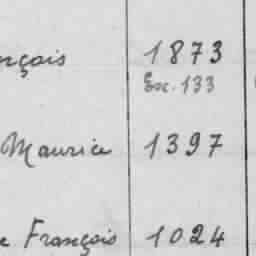 nçois 1873
Esc. 133
Maurice 1397
François 1024